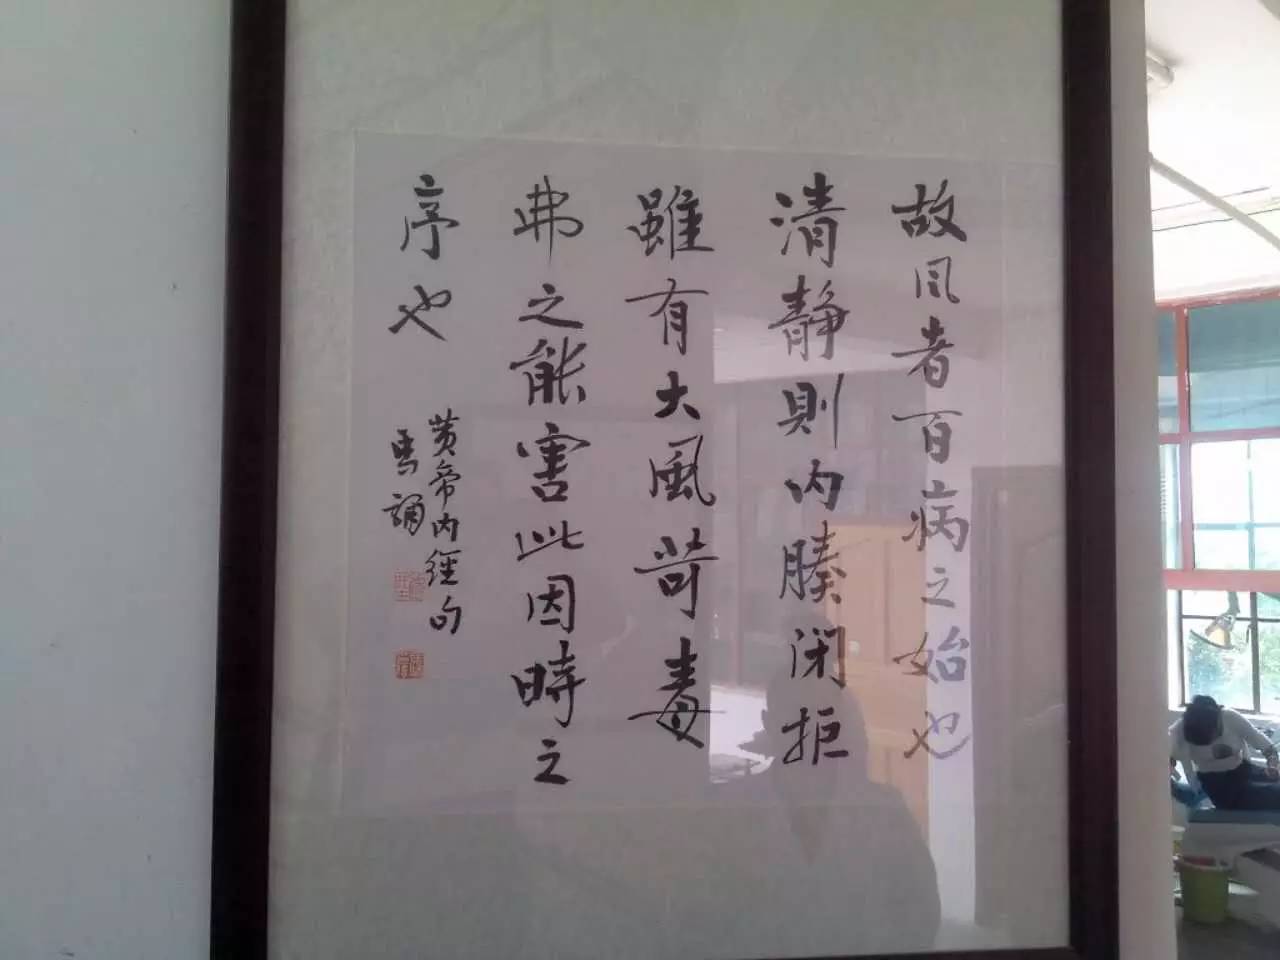 故风者百病之始也
清静則内腠闭拒
雖有大風苛毒
弗之能害此因時之
序也
黄帝内經句
馬誦